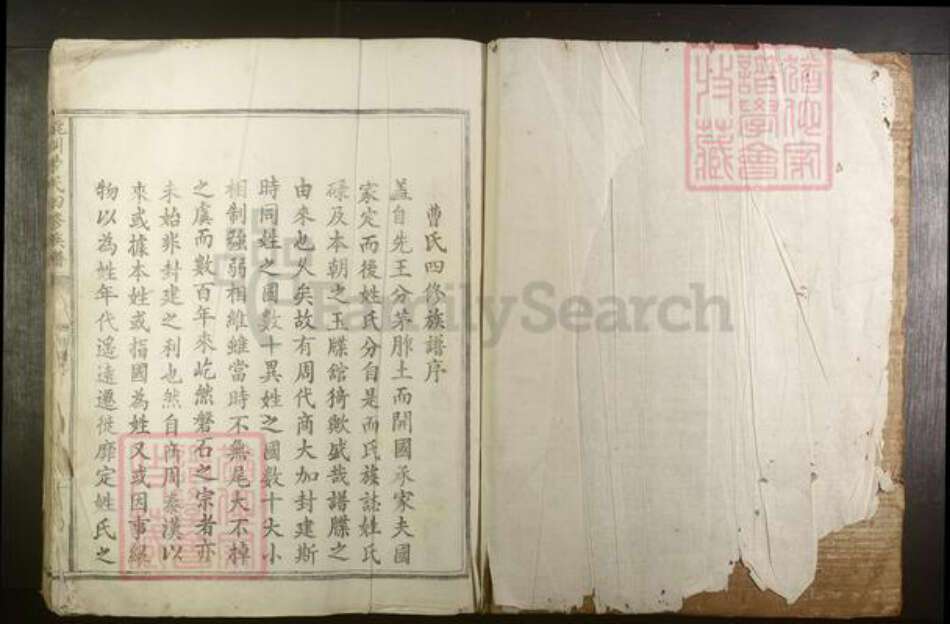 曹氏四修族譜序
蓋自先王分茅胙土而開國承家夫國
家定而後姓氏分自是而氏族誌姓氏
碌及本朝之玉牒舘猗歟盛哉譜牒之
由來也久矣故有周代商大加封建斯
時同姓之國數十異姓之國數十大小
相制強弱相維雖當時不無尾大不掉
之虞而數百年來屹然磐石之宗者亦
未始非封建之利也然自商周秦漢以
來或據本姓或指國為姓又或因事緣
物以為姓年代遙遠遷徙靡定姓氏之
氏四修族譜
譜學會
收藏
FamilySearch